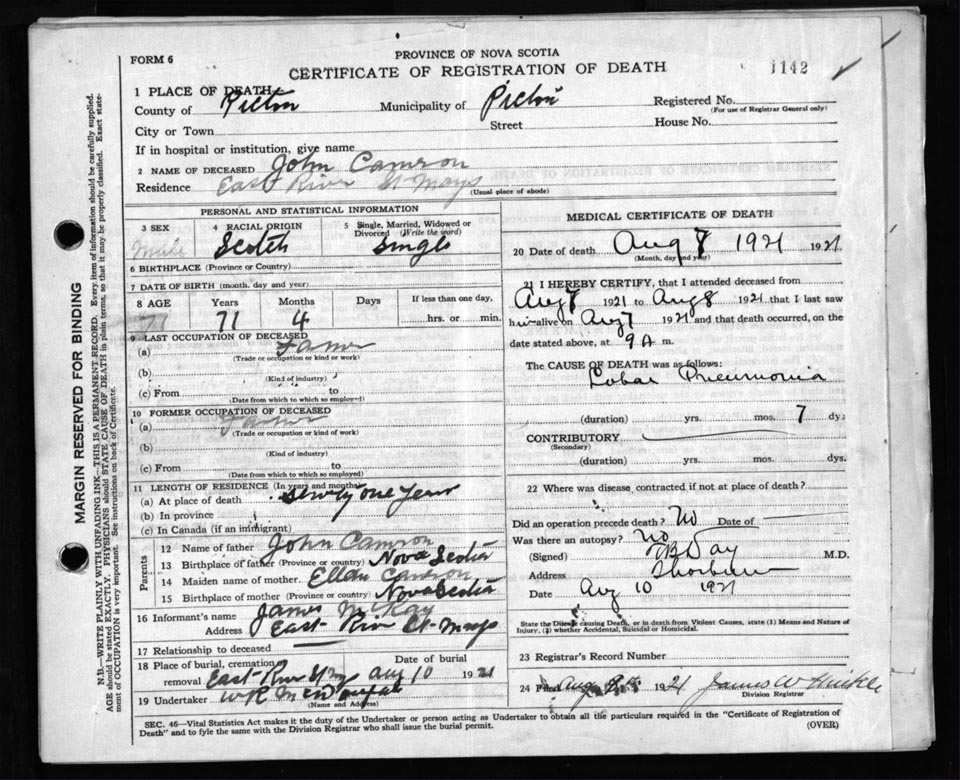 FORM 6
PROVINCE OF NOVA SCOTIA
CERTIFICATE OF REGISTRATION OF DEATH
1142
1 PLACE OF DEATH
County of Pictou Municipality of Pictou Registered No.
(For use of Registrar General only)
City or Town Street House No.
If in hospital or institution, give name
2 NAME OF DECEASED John Camron
Residence East River St Mays
(Usual place of abode)
PERSONAL AND STATISTICAL INFORMATION
3 SEX 4 RACIAL ORIGIN 5 Single, Married, Widowed or Divorced (Write the word)
Male Scotch Single
6 BIRTHPLACE (Province or Country)
7 DATE OF BIRTH (month, day and year)
8 AGE Years Months Days If less than one day,
71 71 4 hrs. or min.
9 LAST OCCUPATION OF DECEASED
(a) Farmer
(Trade or occupation or kind or work)
(b)
(Kind of industry)
(c) From to
(Date from which to which so employed)
10 FORMER OCCUPATION OF DECEASED
(a) Farmer
(Trade or occupation or kind of work)
(b)
(Kind of industry)
(c) From to
(Date from which to which so employed)
11 LENGTH OF RESIDENCE (In years and months)
(a) At place of death Sevnty one Year
(b) In province
(c) In Canada (if an immigrant)
Parents
12 Name of father John Camron
13 Birthplace of father (Province or country) Nova Scotia
14 Maiden name of mother Ellen Camron
15 Birthplace of mother (Province or Country) Nova Scotia
16 Informant's name James McKay
Address East River St Mays
17 Relationship to deceased
18 Place of burial, cremation Date of burial
removal East River St M Aug 10 1921
19 Undertaker W R
(Name and Address)
MEDICAL CERTIFICATE OF DEATH
20 Date of death Aug 8 1921 1921
(Month, day and year)
21 I HEREBY CERTIFY, that I attended deceased from
Aug 8 1921 to Aug 8 1921 that I last saw
him alive on Aug 7 1921 and that death occurred, on the
date stated above, at 9 A m.
The CAUSE OF DEATH was as follows:
Lobar Pneumonia
(duration) yrs. mos. 7 dys
CONTRIBUTORY
(Secondary)
(duration) yrs. mos. dys.
22 Where was disease contracted if not at place of death?
Did an operation precede death? No Date of
Was there an autopsy? No
(Signed) Day M.D.
Address Thorburn
Date Aug 10 1921
State the Disease causing Death, or in death from Violent Causes, state (1) Means and Nature of
Injury, (2) whether Accidental, Suicidal or Homicidal.
23 Registrar's Record Number
24 Filed Aug 1921 James W
Division Registrar
SEC. 46—Vital Statistics Act makes it the duty of the Undertaker or person acting as Undertaker to obtain all the particulars required in the "Certificate of Registration of
Death" and to fyle the same with the Division Registrar who shall issue the burial permit. (OVER)
MARGIN RESERVED FOR BINDING
N.B.—WRITE PLAINLY WITH UNFADING INK—THIS IS A PERMANENT RECORD. Every item of information should be carefully supplied.
AGE should be stated EXACTLY. PHYSICIANS should STATE CAUSE OF DEATH in plain terms, so that it may be properly classified. Exact state-
ment of OCCUPATION is very important. See instructions on back of Certificate.